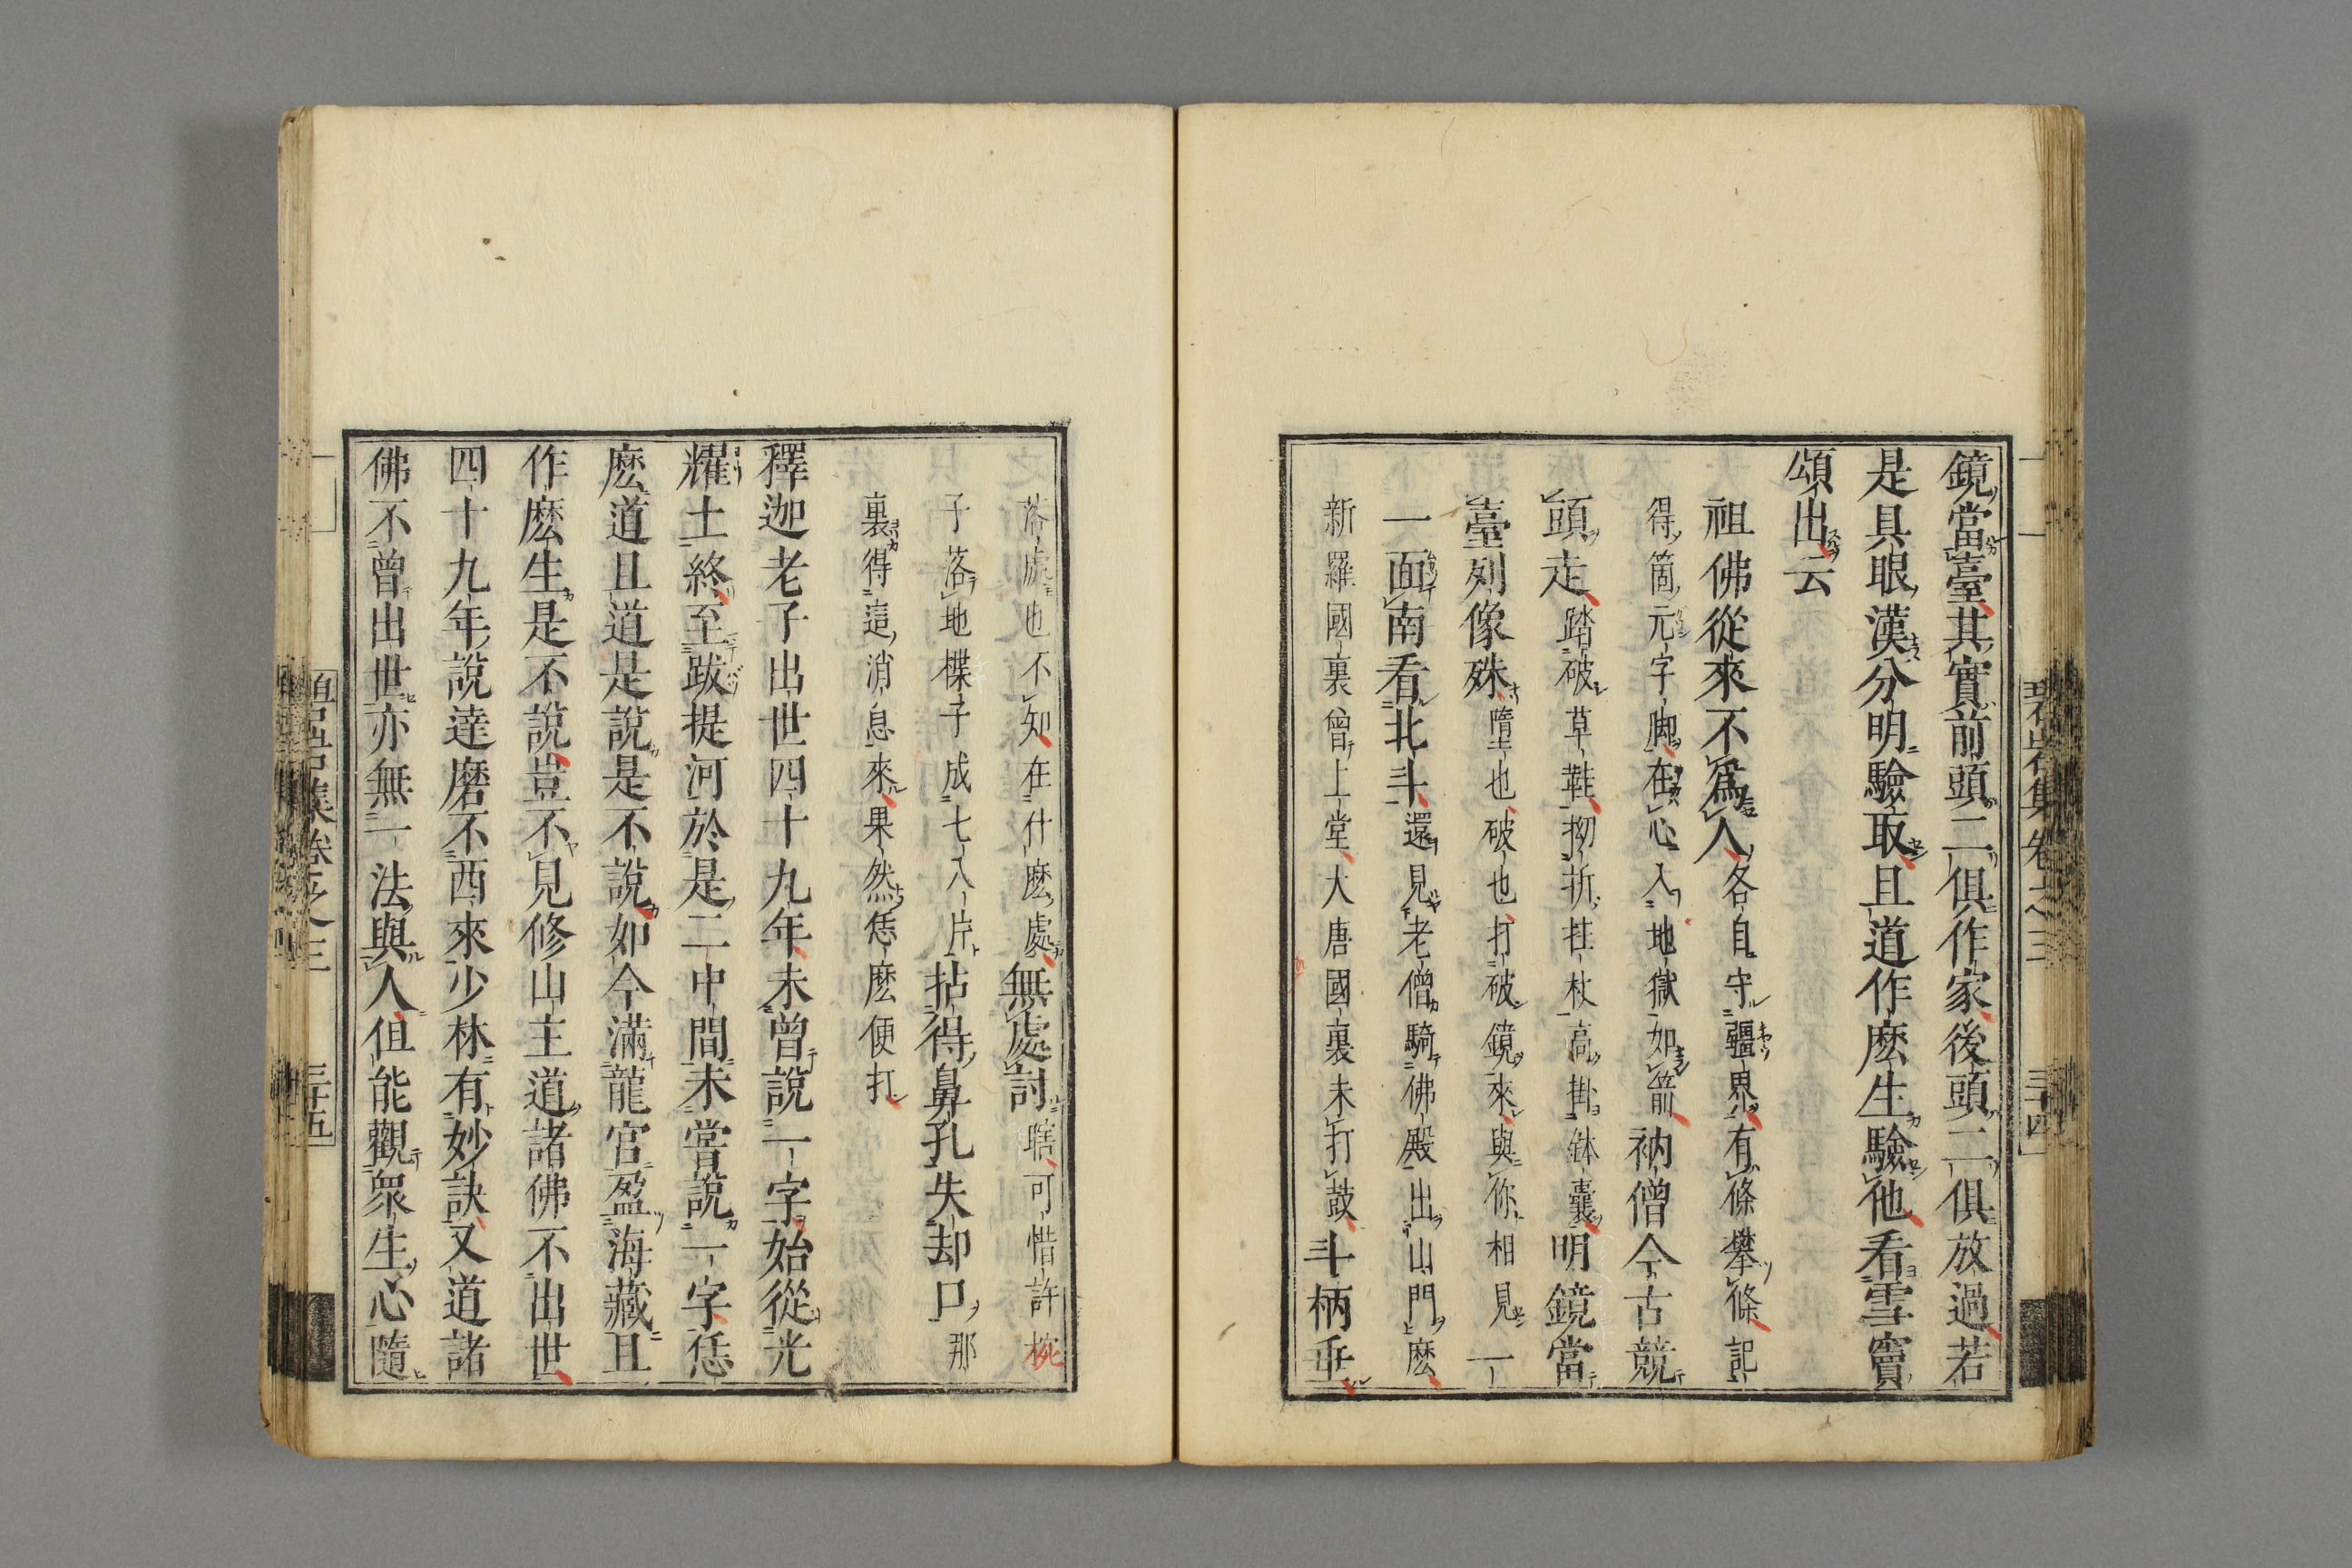 鏡當臺其實前頭二俱作家後頭二俱放過若
是具眼漢分明驗取且道作麽生驗他看雪竇
頌出云
祖佛從來不爲人各自守疆界有條攀條記
得箇元字脚在心入地獄如箭衲僧今古競
頭走踏破草鞋拗折拄杖高掛鉢囊明鏡當
臺列像殊墮也破也打破鏡來與你相見一
一面南看北斗還見老僧騎佛殿出山門麽
新羅國裏曾上堂大唐國裏未打鼓斗柄垂
落處也不知在什麽處無處討瞎可惜許椀
子落地楪子成七八片拈得鼻孔失却口那
裏得這消息來果然恁麽便打
釋迦老子出世四十九年未曾說一字始從光
耀土終至跋提河於是二中間未嘗說一字恁
麽道且道是說是不說如今滿龍宮盈海藏且
作麽生是不說豈不見修山主道諸佛不出世
四十九年說達磨不西來少林有妙訣又道諸
佛不曾出世亦無一法與人但能觀衆生心隨
碧岩集卷之三 三十四
碧岩集卷之三 三十五